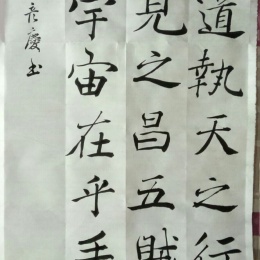 道執天之行
見之昌五賊
宇宙在乎手
彦慶书